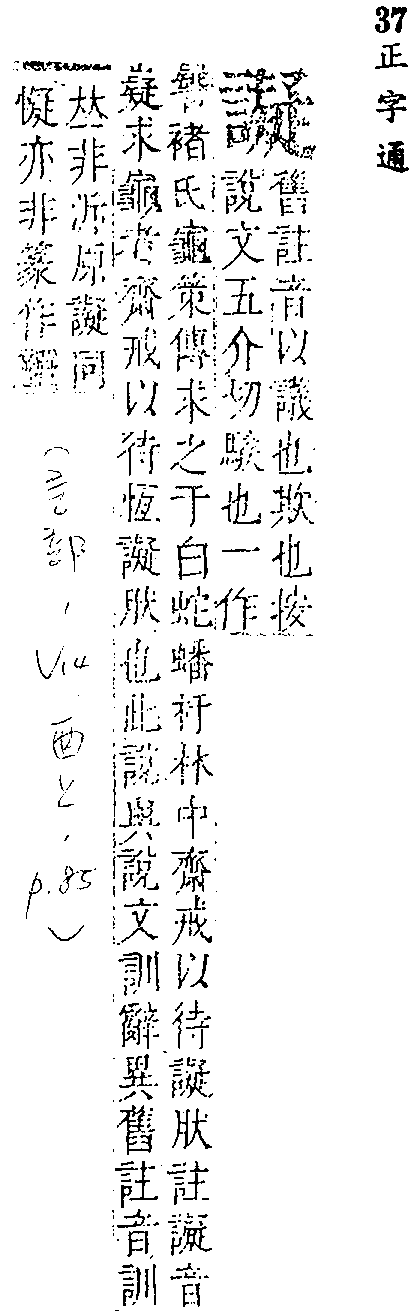 37 正字通
舊註音以議也欺也按
說文五介切騃也一作
褚氏龜策傳求之于白蛇蟠杅林中齋戒以待譺肰註譺音
疑求龜者齋戒以待恆譺肰也此說與說文訓辭異舊註音訓
𠀤非泝原譺同
懝亦非篆作
(言部,V14 酉上,p.85)